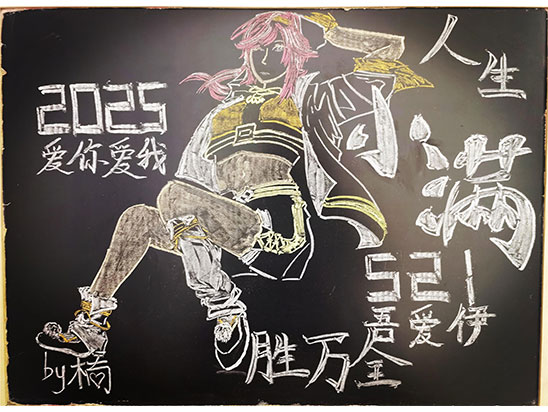 2025
爱你爱我
人生
小满
胜万全
521
吾爱伊
by 橘